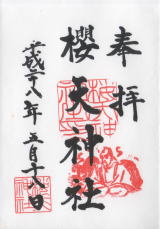 奉拝
櫻天神社
平成二十八年五月十八日